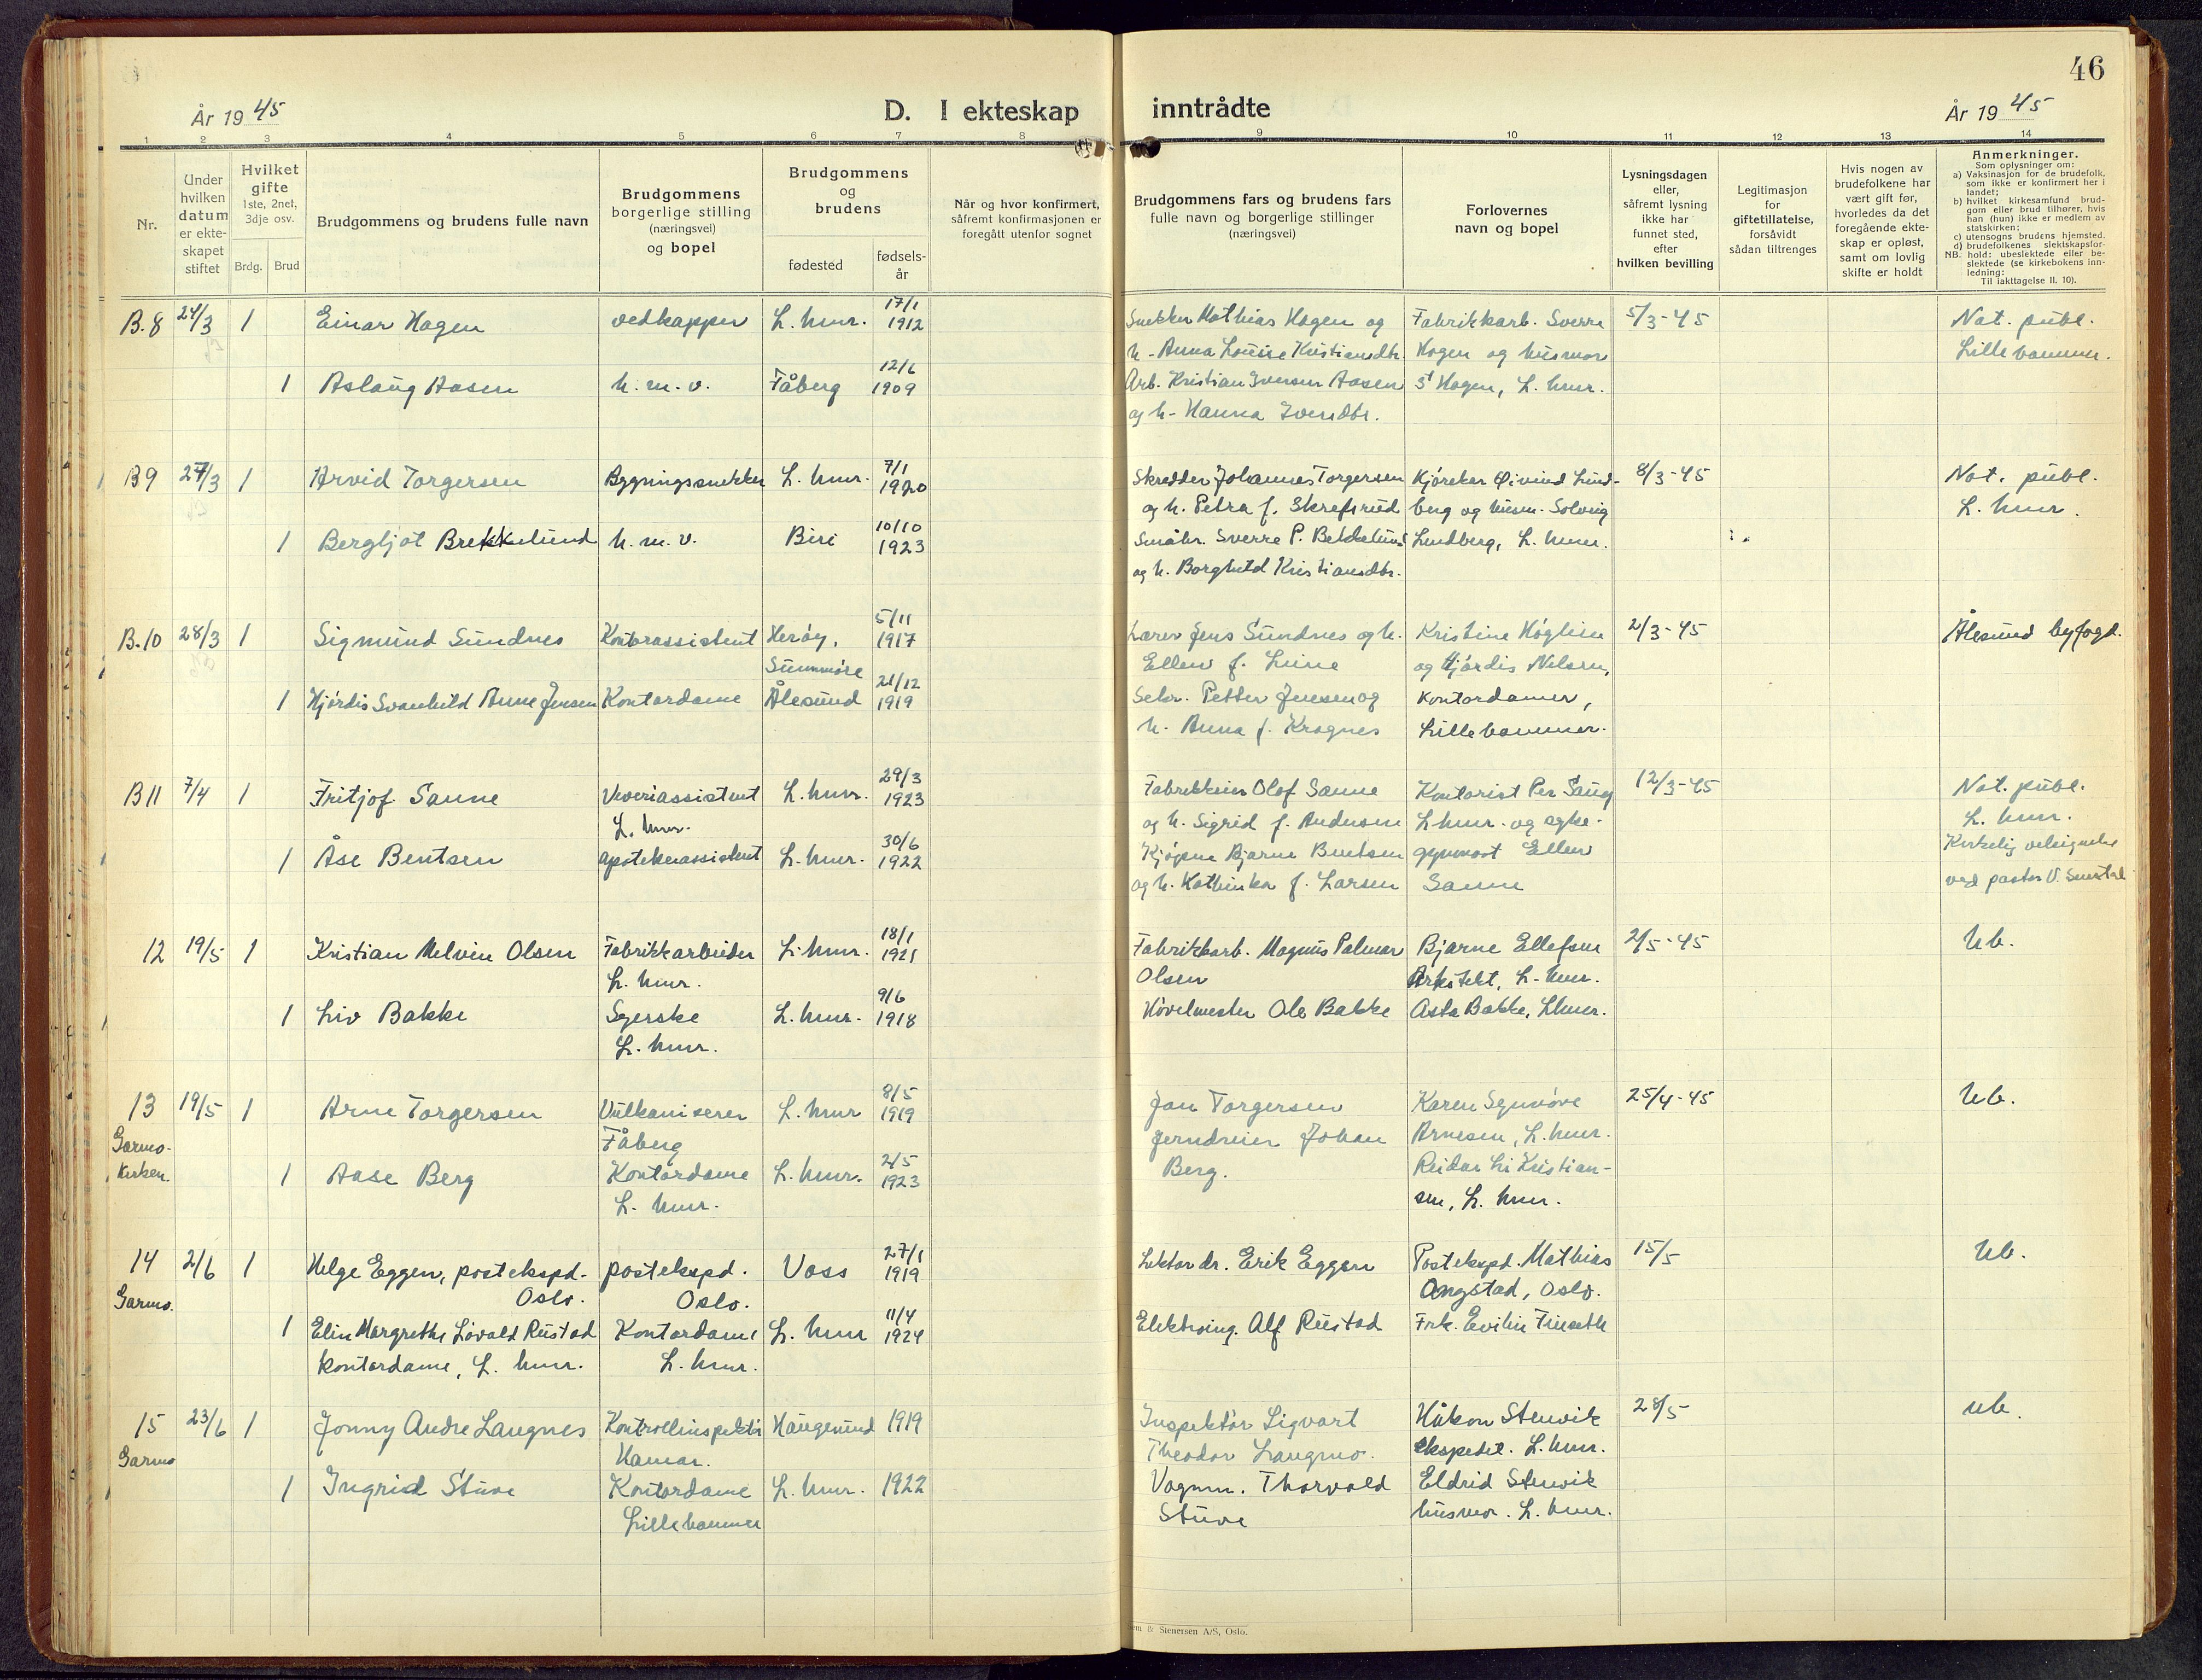 46
År 1945
D. I ekteskap inntrådte
År 1945
1 2 3 4 5 6 7 8 9 10 11 12 13 14
Nr.
Under hvilken datum er ekteskapet stiftet
Hvilket gifte 1ste, 2net, 3dje osv.
Brdg. Brud
Brudgommens og brudens fulle navn
Brudgommens borgerlige stilling (næringsvei) og bopel
Brudgommens og brudens
fødested
fødselsår
Når og hvor konfirmert, såfremt konfirmasjonen er foregått utenfor sognet
Brudgommens fars og brudens fars fulle navn og borgerlige stillinger (næringsvei)
Forlovernes navn og bopel
Lysningsdagen eller, såfremt lysning ikke har funnet sted, efter hvilken bevilling
Legitimasjon for giftetillatelse, forsåvidt sådan tiltrenges
Hvis nogen av brudefolkene har vært gift før, hvorledes da det foregående ekteskap er opløst, samt om lovlig skifte er holdt
Anmerkninger.
Som oplysninger om:
a) Vaksinasjon for de brudefolk, som ikke er konfirmert her i landet;
b) hvilket kirkesamfund brudgom eller brud tilhører, hvis han (hun) ikke er medlem av statskirken;
c) utensogns brudens hjemsted.
d) brudefolkenes slektskapsforhold: ubeslektede eller beslektede (se kirkebokens innledning:
NB.
Til iakttagelse II. 10).
B.8 24/3 1 Einar Hagen vedkapper L. hmr. 17/1 1912
Snekker Mathias Hagen og Fabrikkarb. Sverre 5/3-45 Not. publ.
h. Anna Louise Kristiansdtr. Hagen og husmor Lillehammer.
1 Aslaug Aasen h.m.v. Fåberg 12/6 1909
Arb. Kristian Iversen Aasen Hagen, L. hmr.
og h. Hanna Iversdtr.
B9 27/3 1 Arvid Torgersen Bygningssnekker L. hmr. 7/1 1920
Skredder Johannes Torgersen Kjøreker Øivind Lund- 8/3-45 Not. publ.
og h. Petra f. Skrefsrud berg og husm. Solveig L. hmr.
1 Bergljot Brekkelund h.m.v. Biri 10/10 1923
Småbr. Sverre P. Bekkelund Lundberg, L. hmr.
og h. Borghild Kristiansdtr.
B.10 28/3 1 Sigmund Sundnes Kontorassistent Herøy, Sunnmøre 5/11 1917
Lærer Jens Sundnes og h. Kristine Høglien 2/3-45 Ålesund byfogd.
Ellen f. Leine og Hjørdis Nilsen,
1 Hjørdis Svanhild Anne Jensen Kontordame Ålesund 21/12 1919
Petter Jensen og kontordamer,
h. Anna f. Krognes Lillehammer.
B11 7/4 1 Fritjof Sanne Veveriassistent L. hmr. L. hmr. 29/3 1923
Fabrikkeier Olof Sanne Kontorist Per Saug 12/3-45 Not. publ.
og h. Sigrid f. Andersen L hmr. og syke- L. hmr.
1 Åse Bentsen apotekerassistent L. hmr. 30/6 1922
Kjøpm Bjarne Bentsen gymnast Ellen Kirkelig velsignelse
og h. Kathinka f. Larsen Sanne ved pastor
12 19/5 1 Kristian Melvin Olsen Fabrikkarbeider L. hmr. L. hmr. 18/1 1921
Fabrikkarb. Magnus Palmar Bjarne Ellefsen 2/5-45 Ub.
Olsen Arkitekt, L. hmr.
1 Liv Bakke Syerske L. hmr. L. hmr. 9/6 1918
Høvelmester Ole Bakke Asta Bakke, Lhmr.
13 19/5 1 Arne Torgersen Vulkaniserer Fåberg L. hmr 8/5 1919
Garmo-
kirken.
Jan Torgersen Karen Synnøve 25/4-45 Ub.
Jerndreier Johan Arnesen, L. hmr.
1 Aase Berg Kontordame L. hmr. L. hmr. 2/5 1923
Berg. Reidar Kristian-
sen, L. hmr.
14 2/6 1 Helge Eggen, postekspd. Oslo. postekspd. Oslo. Voss 27/1 1919
Garmo.
Lektor dr. Erik Eggen Postekspd. Mathias 15/5 Ub.
Angstad, Oslo.
1 Elin Margrethe Løvold Rustad kontordame, L. hmr. Kontordame L. hmr. L. hmr 11/4 1924
Elektroing. Alf Rustad Frk. Evilin
15 23/6 1 Jonny Andre Langnes Kontrollinspektør Hamar. Haugesund 1919
Garmo
Inspektør Sigvart Håkon Stenvik 28/5 ub.
Theodor ekspedit. L. hmr.
1 Ingrid Stuve Kontordame Lillehammer L. hmr. 1922
Vognm. Thorvald Eldrid Stenvik
Stuve husmor. L. hmr.
& Stenersen A/S, Oslo.